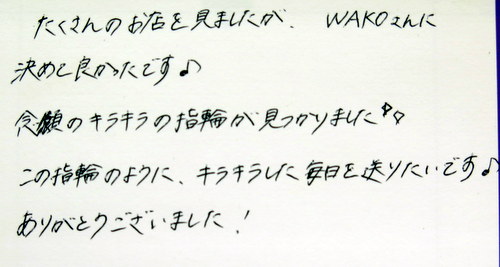 たくさんのお店を見ましたが、WAKOさんに
決めて良かったです♪
念願のキラキラの指輪が見つかりました✧✧
この指輪のように、キラキラした毎日を送りたいです♪
ありがとうございました!